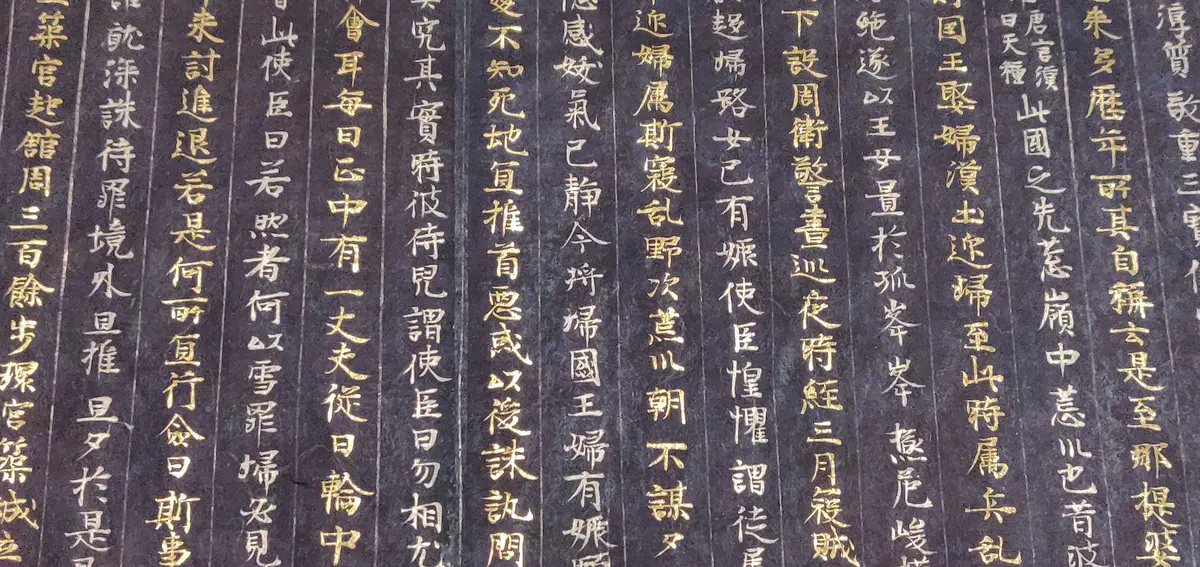 淳質敬重三寶
来多歷年所其自稱云是至那提婆
唐言漢日天種此國之先葱嶺中葱川也昔波
国王娶婦漢土迎歸至此時属兵乱
絶遂以王女置於孤峯峯極危峻
下設周衛警晝巡夜時經三月寇賊
趣歸路女已有娠使臣惶懼謂徒属
迎婦属斯寇乱野次荒川朝不謀夕
感妖氣已静今将歸國王婦有娠顧
憂不知死地宜推首惡或以後誅訊問
究其實時彼侍兒謂使臣曰勿相尤
會耳每日正中有一丈夫從日輪中
此使臣曰若然者何以雪罪歸必見
来討進退若是何所宜行僉曰斯事
就深誅待罪境外且推旦夕於是
築宮起舘周三百餘步環宮築城立